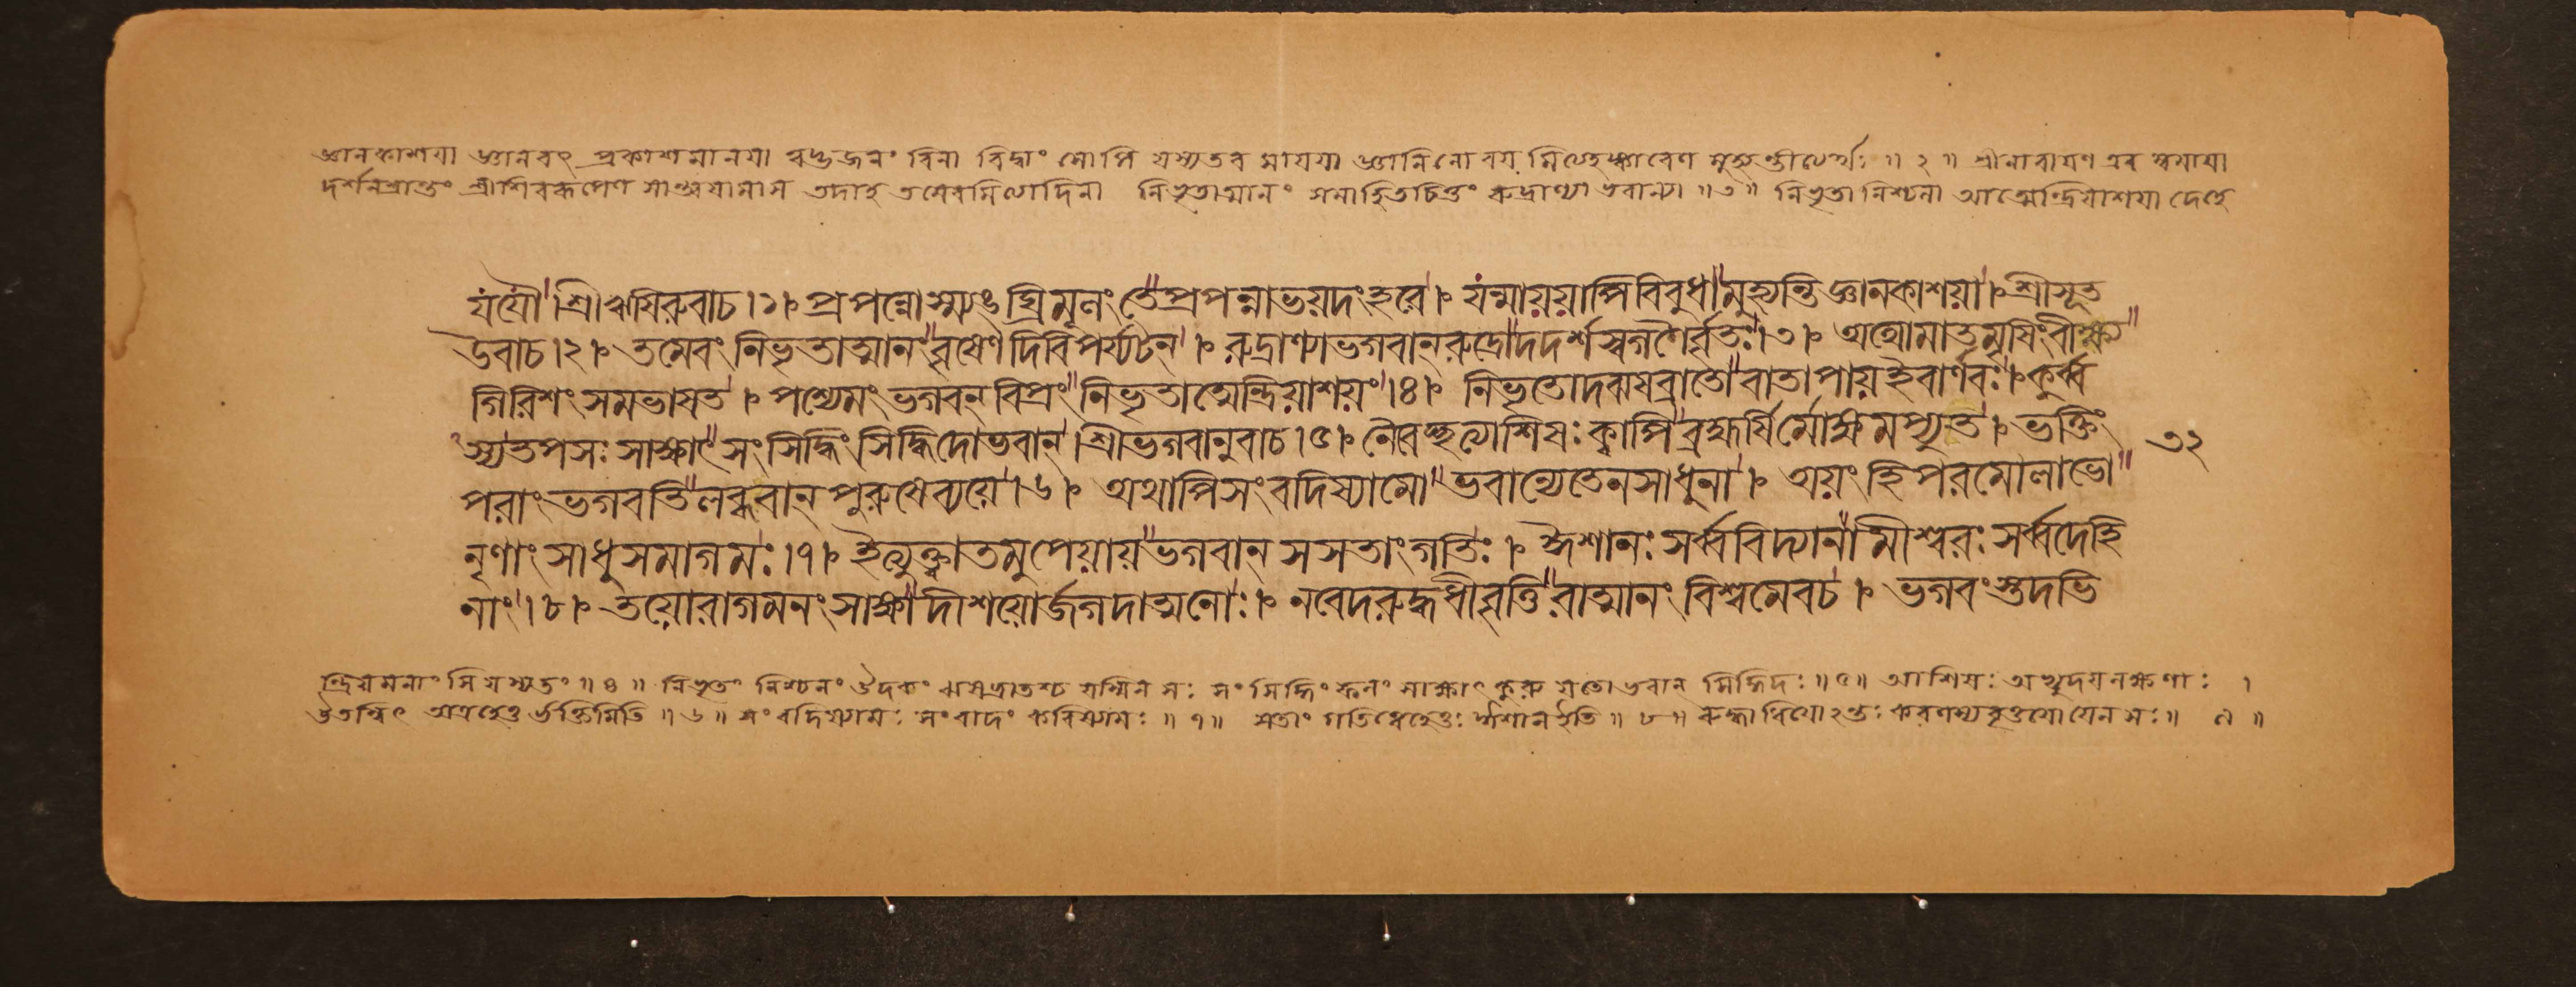 জ্ঞানকাশয়া জ্ঞানবৎ প্রকাশমানয়া ত্বদ্ভজনং বিনা বিদ্বাং সোপি যস্যতব মায়য়া জ্ঞানিনোবয় মিত্যহঙ্কারেণ মুহ্যন্তীত্যর্থঃ ॥ ২ ॥ শ্রীনারায়ণ এব স্বমায়া
দর্শনশ্রান্তং শ্রীশিবরূপেণ সান্ত্বয়ামাস তদাহ তমেবমিত্যাদিনা নিভৃতাত্মানং সমাহিতচিত্তং রুদ্রাণ্যা ভবান্যা ॥৩॥ নিভৃতা নিশ্চলা আত্মেন্দ্রিয়াশয়া দেহে
যযৌ।শ্রীঋষিরুবাচ।১। প্রপন্নোস্ম্যঙ্ঘ্রিমূলং তে প্রপন্নাভয়দংহরে। যন্মায়য়াপিবিবুধা মুহ্যন্তি জ্ঞানকাশয়া। শ্রীসূত
উবাচ।২। তমেবং নিভৃতাত্মানং বৃষেণ দিবিপর্য্যটন্। রুদ্রাণ্যাভগবান্ রুদ্রো দদর্শস্বগণৈর্বৃতঃ।৩। অথোমাতমৃষিংবীক্ষ্য
গিরিশং সমভাষত। পশ্যেমং ভগবন্ বিপ্রং নিভৃতাত্মেন্দ্রিয়াশয়ং।৪। নিভৃতোদঝষব্রাতো বাতাপায়ইবার্ণবঃ। কুর্ব্ব
স্যতপসঃ সাক্ষাৎ সংসিদ্ধিং সিদ্ধিদোভবান্। শ্রীভগবানুবাচ।৫। নৈবেচ্ছত্যাশিষঃ ক্বাপি ব্রহ্মর্ষির্মোক্ষমপ্যুত। ভক্তিং
৩২
পরাং ভগবতি লব্ধবান্ পুরুষেব্যয়ে।৬। অথাপিসংবদিষ্যামো ভবান্যেতেনসাধুনা। অয়ংহিপরমোলাভো
নৃণাং সাধুসমাগমঃ।৭। ইত্যুক্ত্বাতমুপেয়ায় ভগবান্ সসতাংগতিঃ। ঈশানঃ সর্ব্ববিদ্যানামীশ্বরঃ সর্ব্বদেহি
নাং।৮। তয়োরাগমনংসাক্ষাদীশয়োর্জগদাত্মনোঃ। নবেদরুদ্ধধীবৃত্তিরাত্মানং বিশ্বমেবচ। ভগবাংস্তদভি
ন্দ্রিয়মনাং সি যস্যতং ॥ ৪ ॥ নিভৃতং নিশ্চলং উদকং ঝষব্রাতশ্চ যস্মিন্ সঃ সংসিদ্ধিং ফলং সাক্ষাৎ কুরু যতোভবান্ সিদ্ধিদঃ ॥৫॥ আশিষঃ অভ্যুদয়লক্ষণাঃ ।
অত্রহেতু র্ভক্তিমিতি ॥ ৬ ॥ সংবদিষ্যামঃ সংবাদং করিষ্যামঃ ॥ ৭ ॥ সতাং গতিত্বেহেতুঃ ঈশানইতি ॥ ৮ ॥ রুদ্ধা ধিয়োঽন্তঃ করণস্যবৃত্তয়ো যেন সঃ॥ ৯ ॥